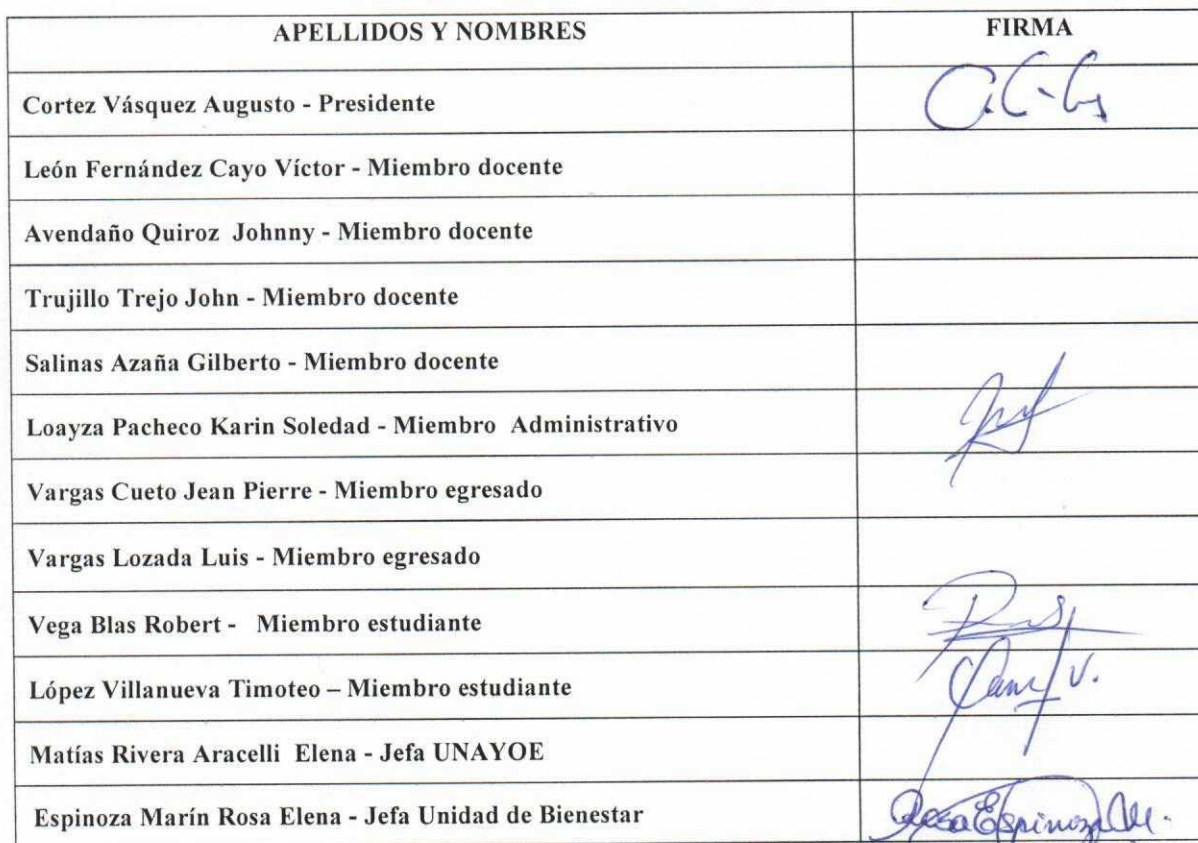 APELLIDOS Y NOMBRES FIRMA
Cortez Vásquez Augusto - Presidente
León Fernández Cayo Víctor - Miembro docente
Avendaño Quiroz Johnny - Miembro docente
Trujillo Trejo John - Miembro docente
Salinas Azaña Gilberto - Miembro docente
Loayza Pacheco Karin Soledad - Miembro Administrativo
Vargas Cueto Jean Pierre - Miembro egresado
Vargas Lozada Luis - Miembro egresado
Vega Blas Robert - Miembro estudiante
López Villanueva Timoteo – Miembro estudiante
Matías Rivera Aracelli Elena - Jefa UNAYOE
Espinoza Marín Rosa Elena - Jefa Unidad de Bienestar Rosa Espinoza M.